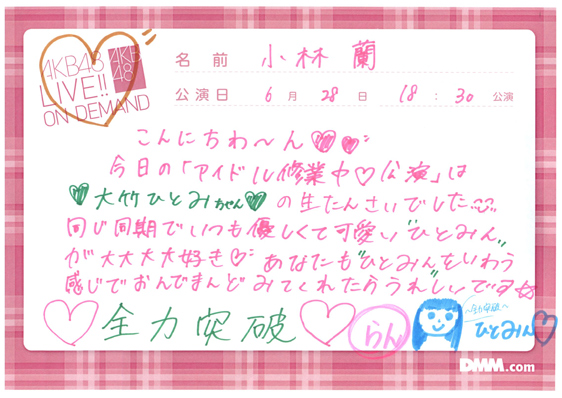 AKB48
LIVE!!
ON DEMAND
AKB
48
名前 小林 蘭
公演日 6月 28日 18:30 公演
こんにちわ〜ん♡♡
今日の「アイドル修業中♡公演」は
♡大竹ひとみちゃん♡の生たんさいでした
同じ同期でいつも優しくて可愛い"ひとみん"
が大大大大好き♡あなたも"ひとみんをいわう
感じでおんでまんど"みてくれたらうれしいです☆
♡全力突破♡
らん
〜全力突破〜
ひとみん♡
DMM.com